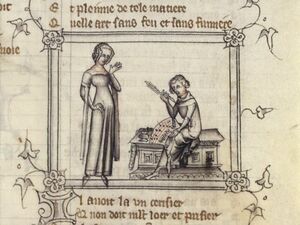 Et plenine de tele matiere
Quelle art sans feu et sans fumiere
uoie
Il auoit la vn cerisier
Q non doit mlt loer et prisier